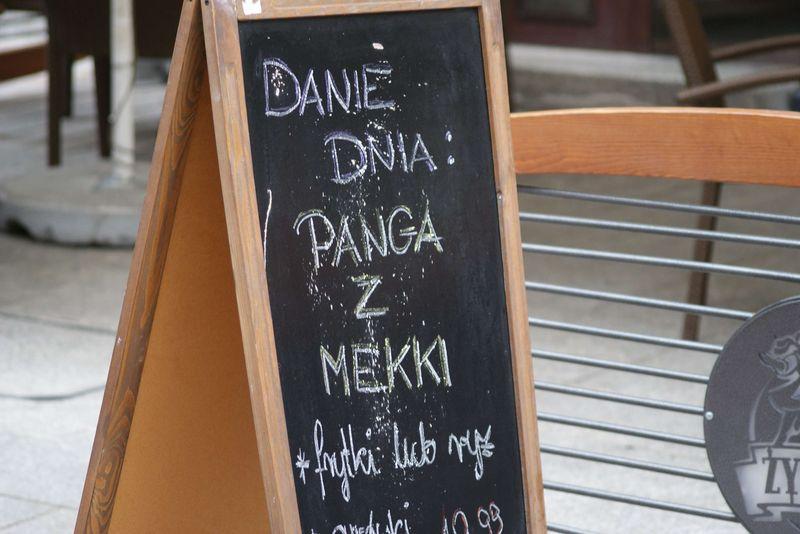 DANIE
DNIA:
PANGA
Z
MEKKI
* frytki lub ryż
19.99
ŻY